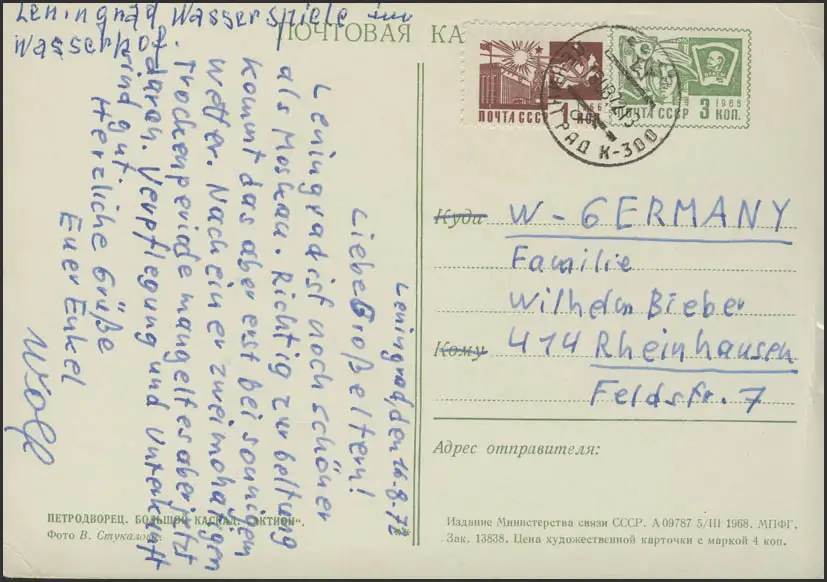 Leningrad Wasserspiele im
Wasserhof
ПОЧТОВАЯ КА
ПОЧТА СССР 1966 1 КОП.
ПОЧТА СССР 1966 3 КОП.
ГРАД К-300
Leningrad, den 14.8.72
Liebe Großeltern!
Leningrad ist noch schöner
als Moskau. Richtig zur Geltung
kommt das aber erst bei sonnigem
Wetter. Nach einer zweimonatigen
Trockenperiode mangelt es aber jetzt
daran. Verpflegung und Unterkunft
sind gut.
Herzliche Grüße
Euer Enkel
Wolf
Куда W-GERMANY
Familie
Wilhelm Bieber
Кому 414 Rheinhausen
Feldstr. 7
Адрес отправителя:
ПЕТРОДВОРЕЦ. БОЛЬШОЙ КАСКАД. „АКТИОН“.
Фото В. Стукалова
Издание Министерства связи СССР. А 09787 5/III 1968. МПФГ.
Зак. 13838. Цена художественной карточки с маркой 4 коп.